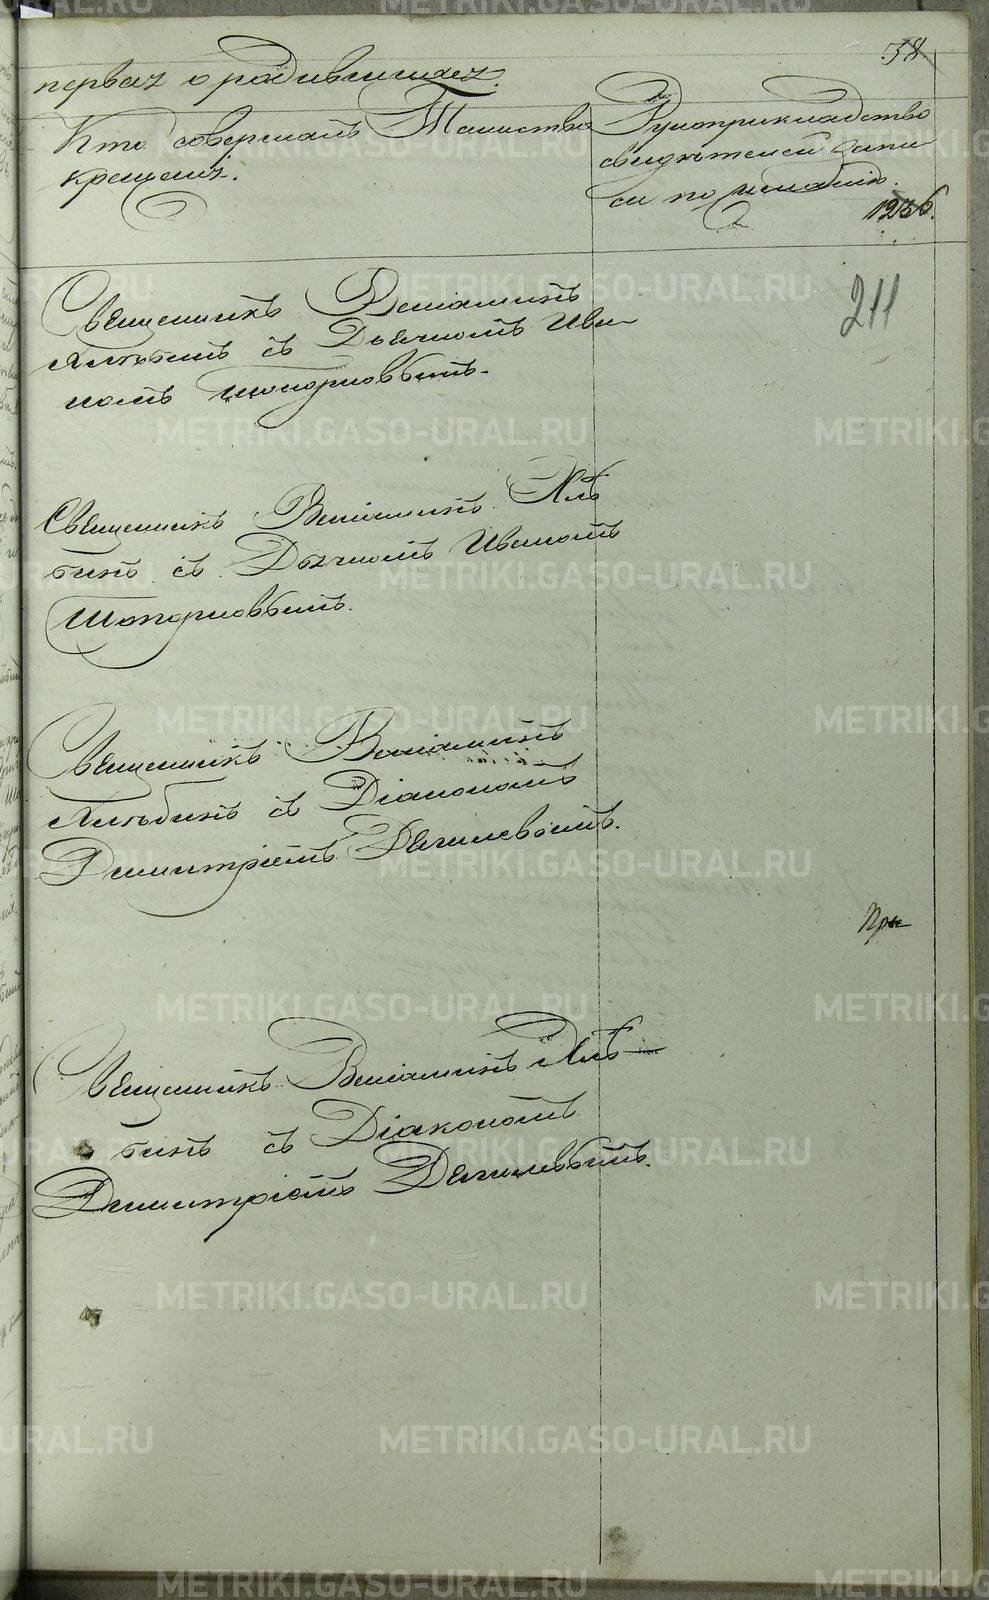 38.
первая о родившихся.
Кто совершалъ Таинство
крещенія.
Рукоприкладство
свидѣтелей запи
си по желанію.
1236.
211
Священникъ Веніаминъ
Алѣбинъ съ Дьячкомъ Ива
номъ Топорковымъ.
Священникъ Веніаминъ Алѣ
бинъ съ Дьячкомъ Иваномъ
Топорковымъ.
Священникъ Веніаминъ
Алѣбинъ съ Діакономъ
Димитріемъ Дягилевымъ.
При
Священникъ Веніаминъ Алѣ-
бинъ съ Діакономъ
Димитріемъ Дягилевымъ.
METRIKI.GASO-URAL.RU